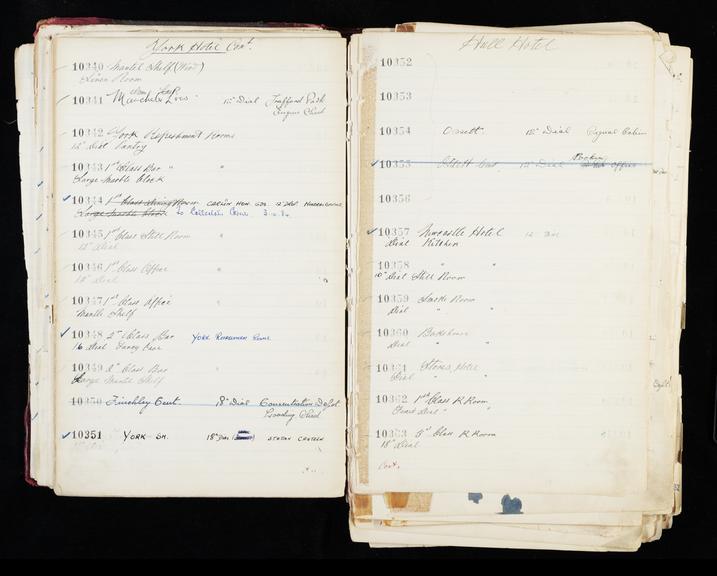 York Hotel Cont.
10340 Mantel Shelf (Wood)
Linen Room
10341 Manchester 12" Dial Trafford Park
10342 York Refreshment Rooms
12" Dial Pantry
10343 1st Class Bar " "
Large Marble Clock
10344 1st Class Dining Room
Large Marble Clock to Collectors Corner
10345 1st Class Still Room "
12" Dial
10346 1st Class Office "
10347 1st Class Office "
Mantle Shelf
10348 2nd Class Bar
16 Dial Fancy Case
10349 2nd Class Bar "
Large Mantle Shelf
10350 Finchley Cent 18" Dial Concentration Depot
10351 YORK SM. 18" DIAL STATION
Hull Hotel
10352
10353
10354 Ossett. 12" Dial Signal Cabin
10355 12" Dial Booking Office
10356
10357 Newcastle Hotel 12" Dial
Dial Kitchen
10358 " "
Dial Still Room
10359 Smoke Room
Dial " "
10360 Bakehouse
Dial " "
10361 Stores, Hotel
Dial " "
10362 1st Class R Room
Dial " "
10363 Class R Room
18" Dial
Cont.